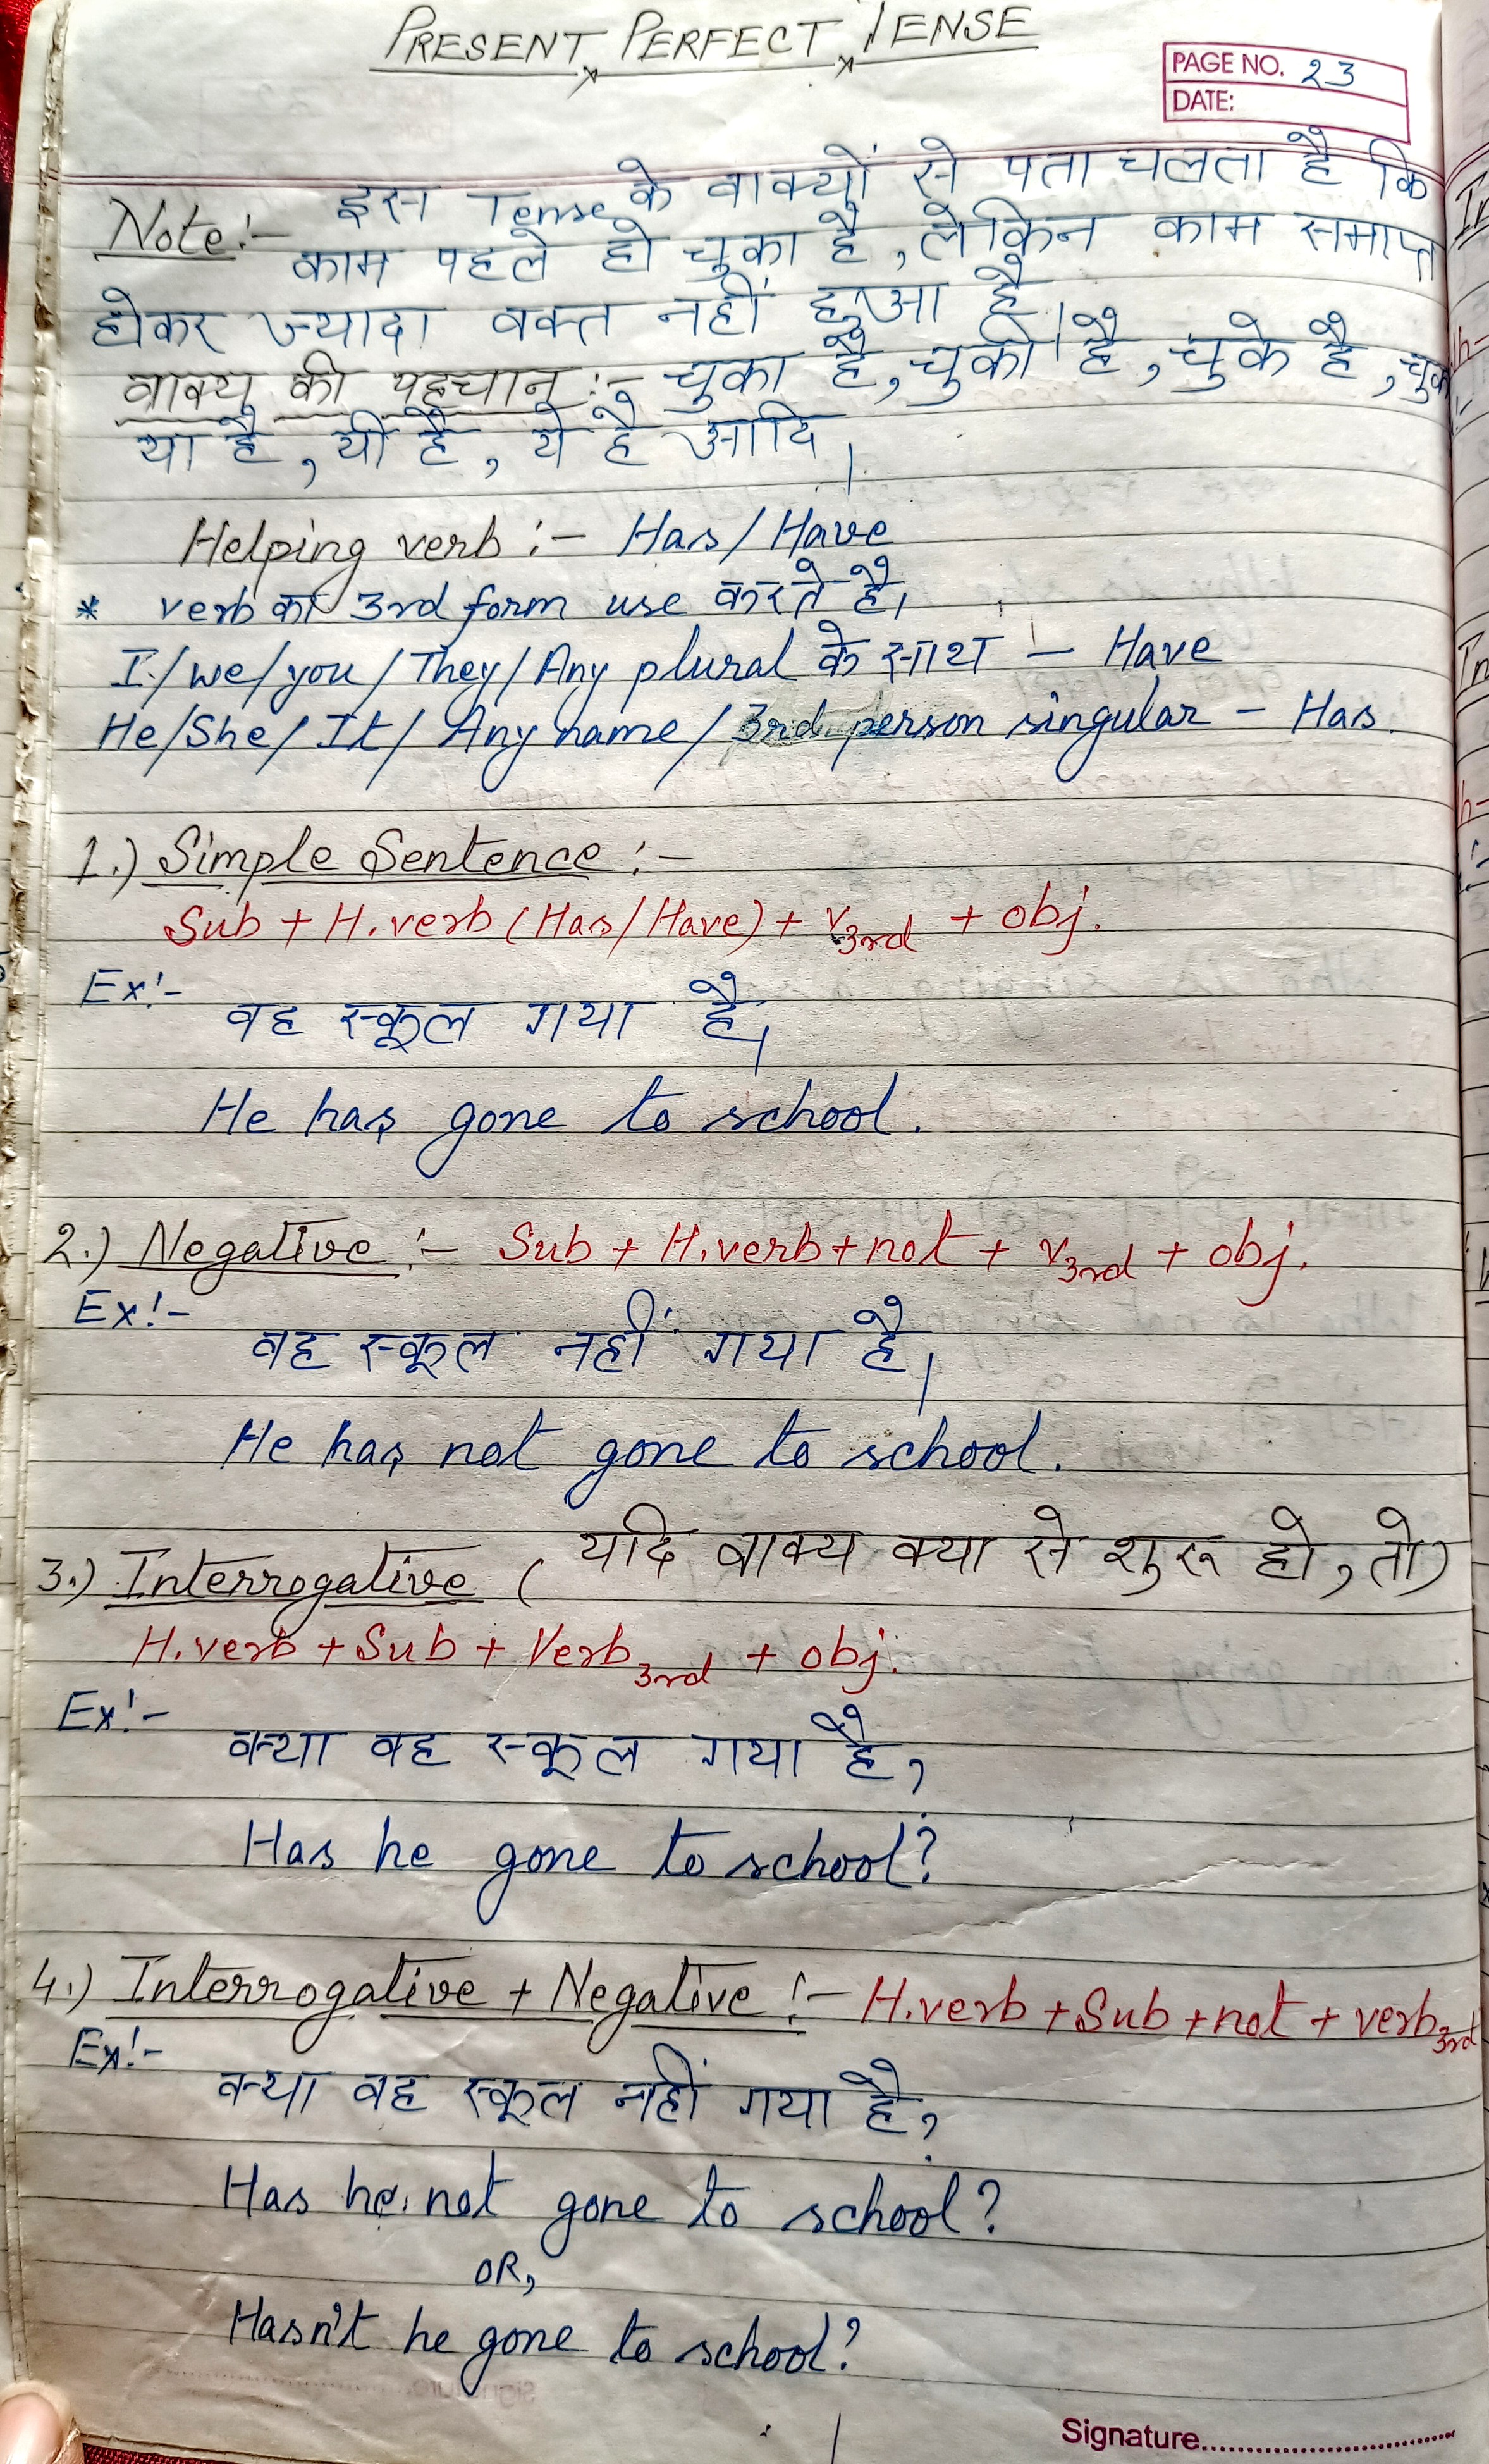 PRESENT PERFECT TENSE
PAGE NO. 23
DATE:
Note:- इस Tense के वाक्यों से पता चलता है कि
काम पहले हो चुका है, लेकिन काम समाप्त
होकर ज्यादा वक्त नहीं हुआ है।
वाक्य की पहचान :- चुका है, चुकी है, चुके है,
या है, यी है, ये है आदि।
Helping verb :- Has/Have
* verb का 3rd form use करते है।
I/we/you/They/Any plural के साथ :- Have
He/She/It/Any name/3rd person singular - Has.
1.) Simple Sentence :-
Sub + H.verb (Has/Have) + v3rd + obj.
Ex:-
वह स्कूल गया है।
He has gone to school.
2.) Negative :- Sub + H.verb + not + v3rd + obj.
Ex:-
वह स्कूल नहीं गया है।
He has not gone to school.
3.) Interrogative (यदि वाक्य क्या से शुरू हो, तो)
H.verb + Sub + Verb3rd + obj.
Ex:-
क्या वह स्कूल गया है?
Has he gone to school?
4.) Interrogative + Negative :- H.verb + Sub + not + verb3rd
Ex:-
क्या वह स्कूल नहीं गया है?
Has he not gone to school?
OR,
Hasn't he gone to school?
Signature